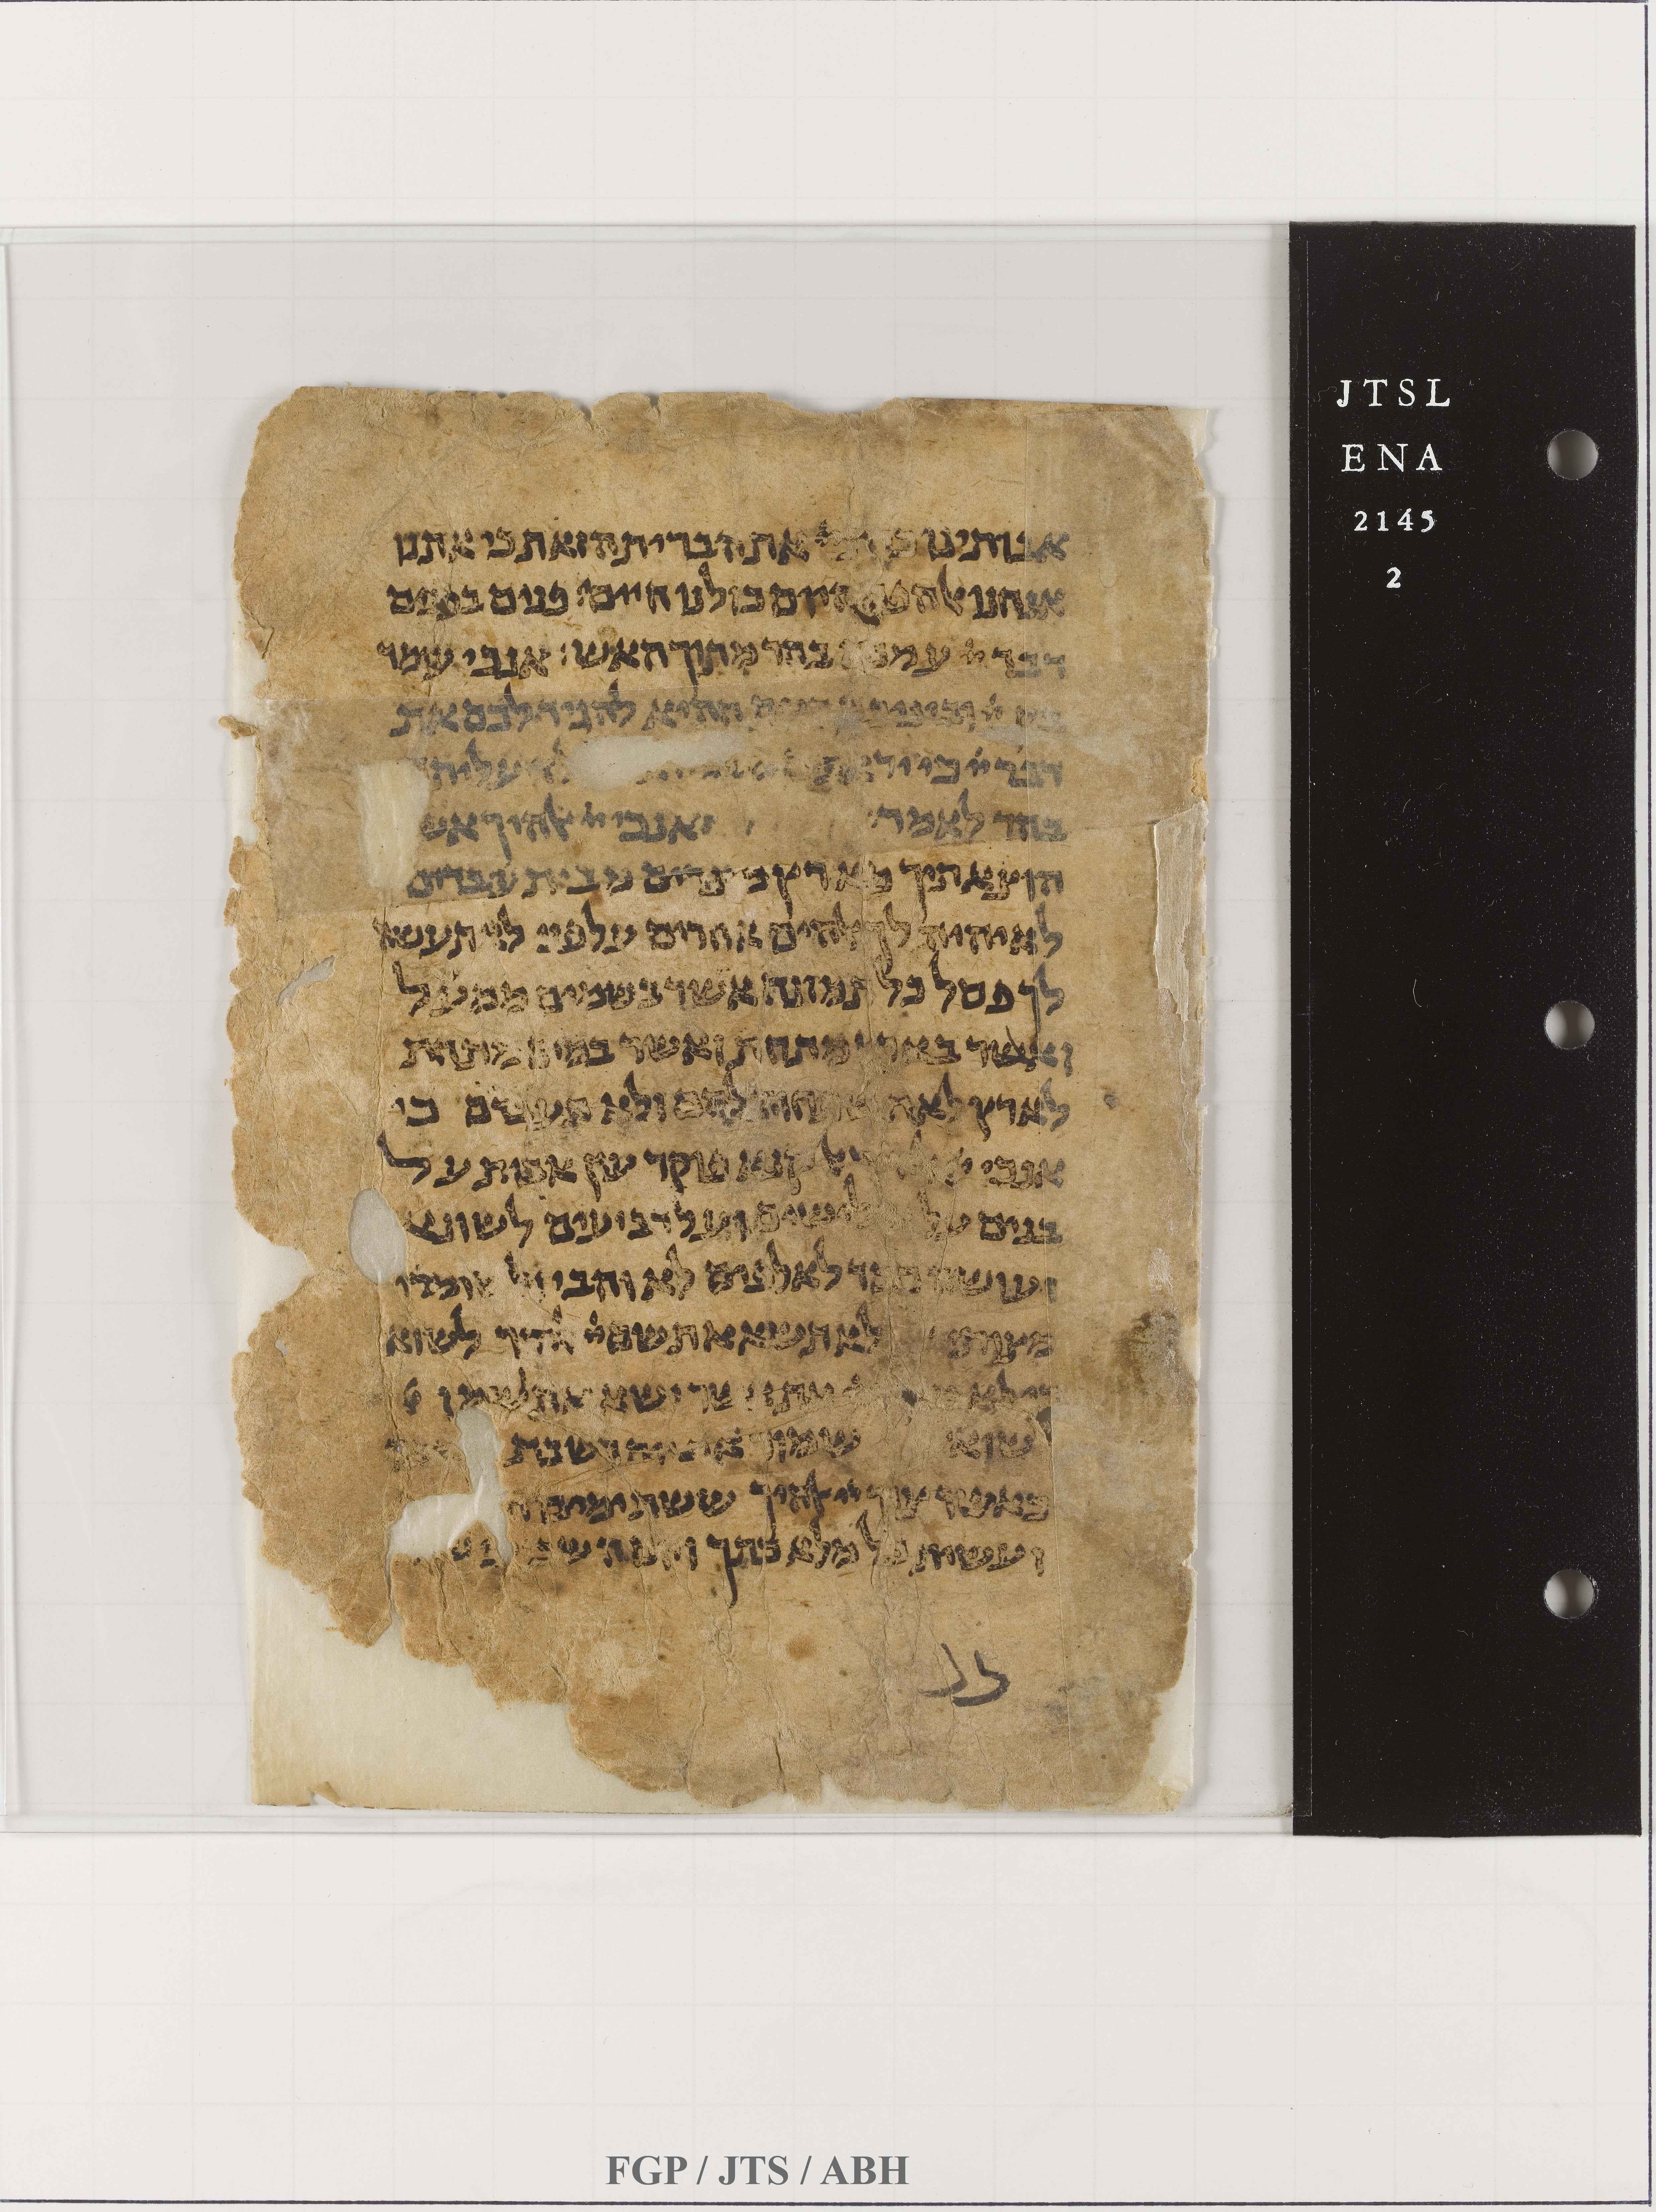 אבותינו כרת יי את הברית הזאת כי אתנו
אנחנו אלה פה היום כולנו חיים: פנים בפנים
דבר יי עמכם בהר מתוך האש: אנכי עמד
בין יי וביניכם בעת ההיא להגיד לכם את
דבר יי כי יראתם ולא עליתם
בהר לאמר אנכי יי אלהיך אשר
הוצאתיך מארץ מצרים מבית עבדים
לא יהיה לך אלהים אחרים על פני לא תעשה
לך פסל כל תמונה אשר בשמים ממעל
ואשר בארץ מתחת ואשר במים מתחת
לארץ לא תשתחוה להם ולא תעבדם כי
אנכי יי אלהיך אל קנא פוקד עון אבות על
בנים על שלישים ועל רביעים לשונאי
ועושה חסד לאלפים לאוהבי ול
לא תשא את שם יי אלהיך לשוא
כי לא ינקה יי את אשר ישא את שמו ל
שוא שמור את יום השבת
כאשר צוך יי אלהיך ששת ימים
ועשית כל מלאכתך ויום
JTSL
ENA
2145
2
FGP / JTS / ABH